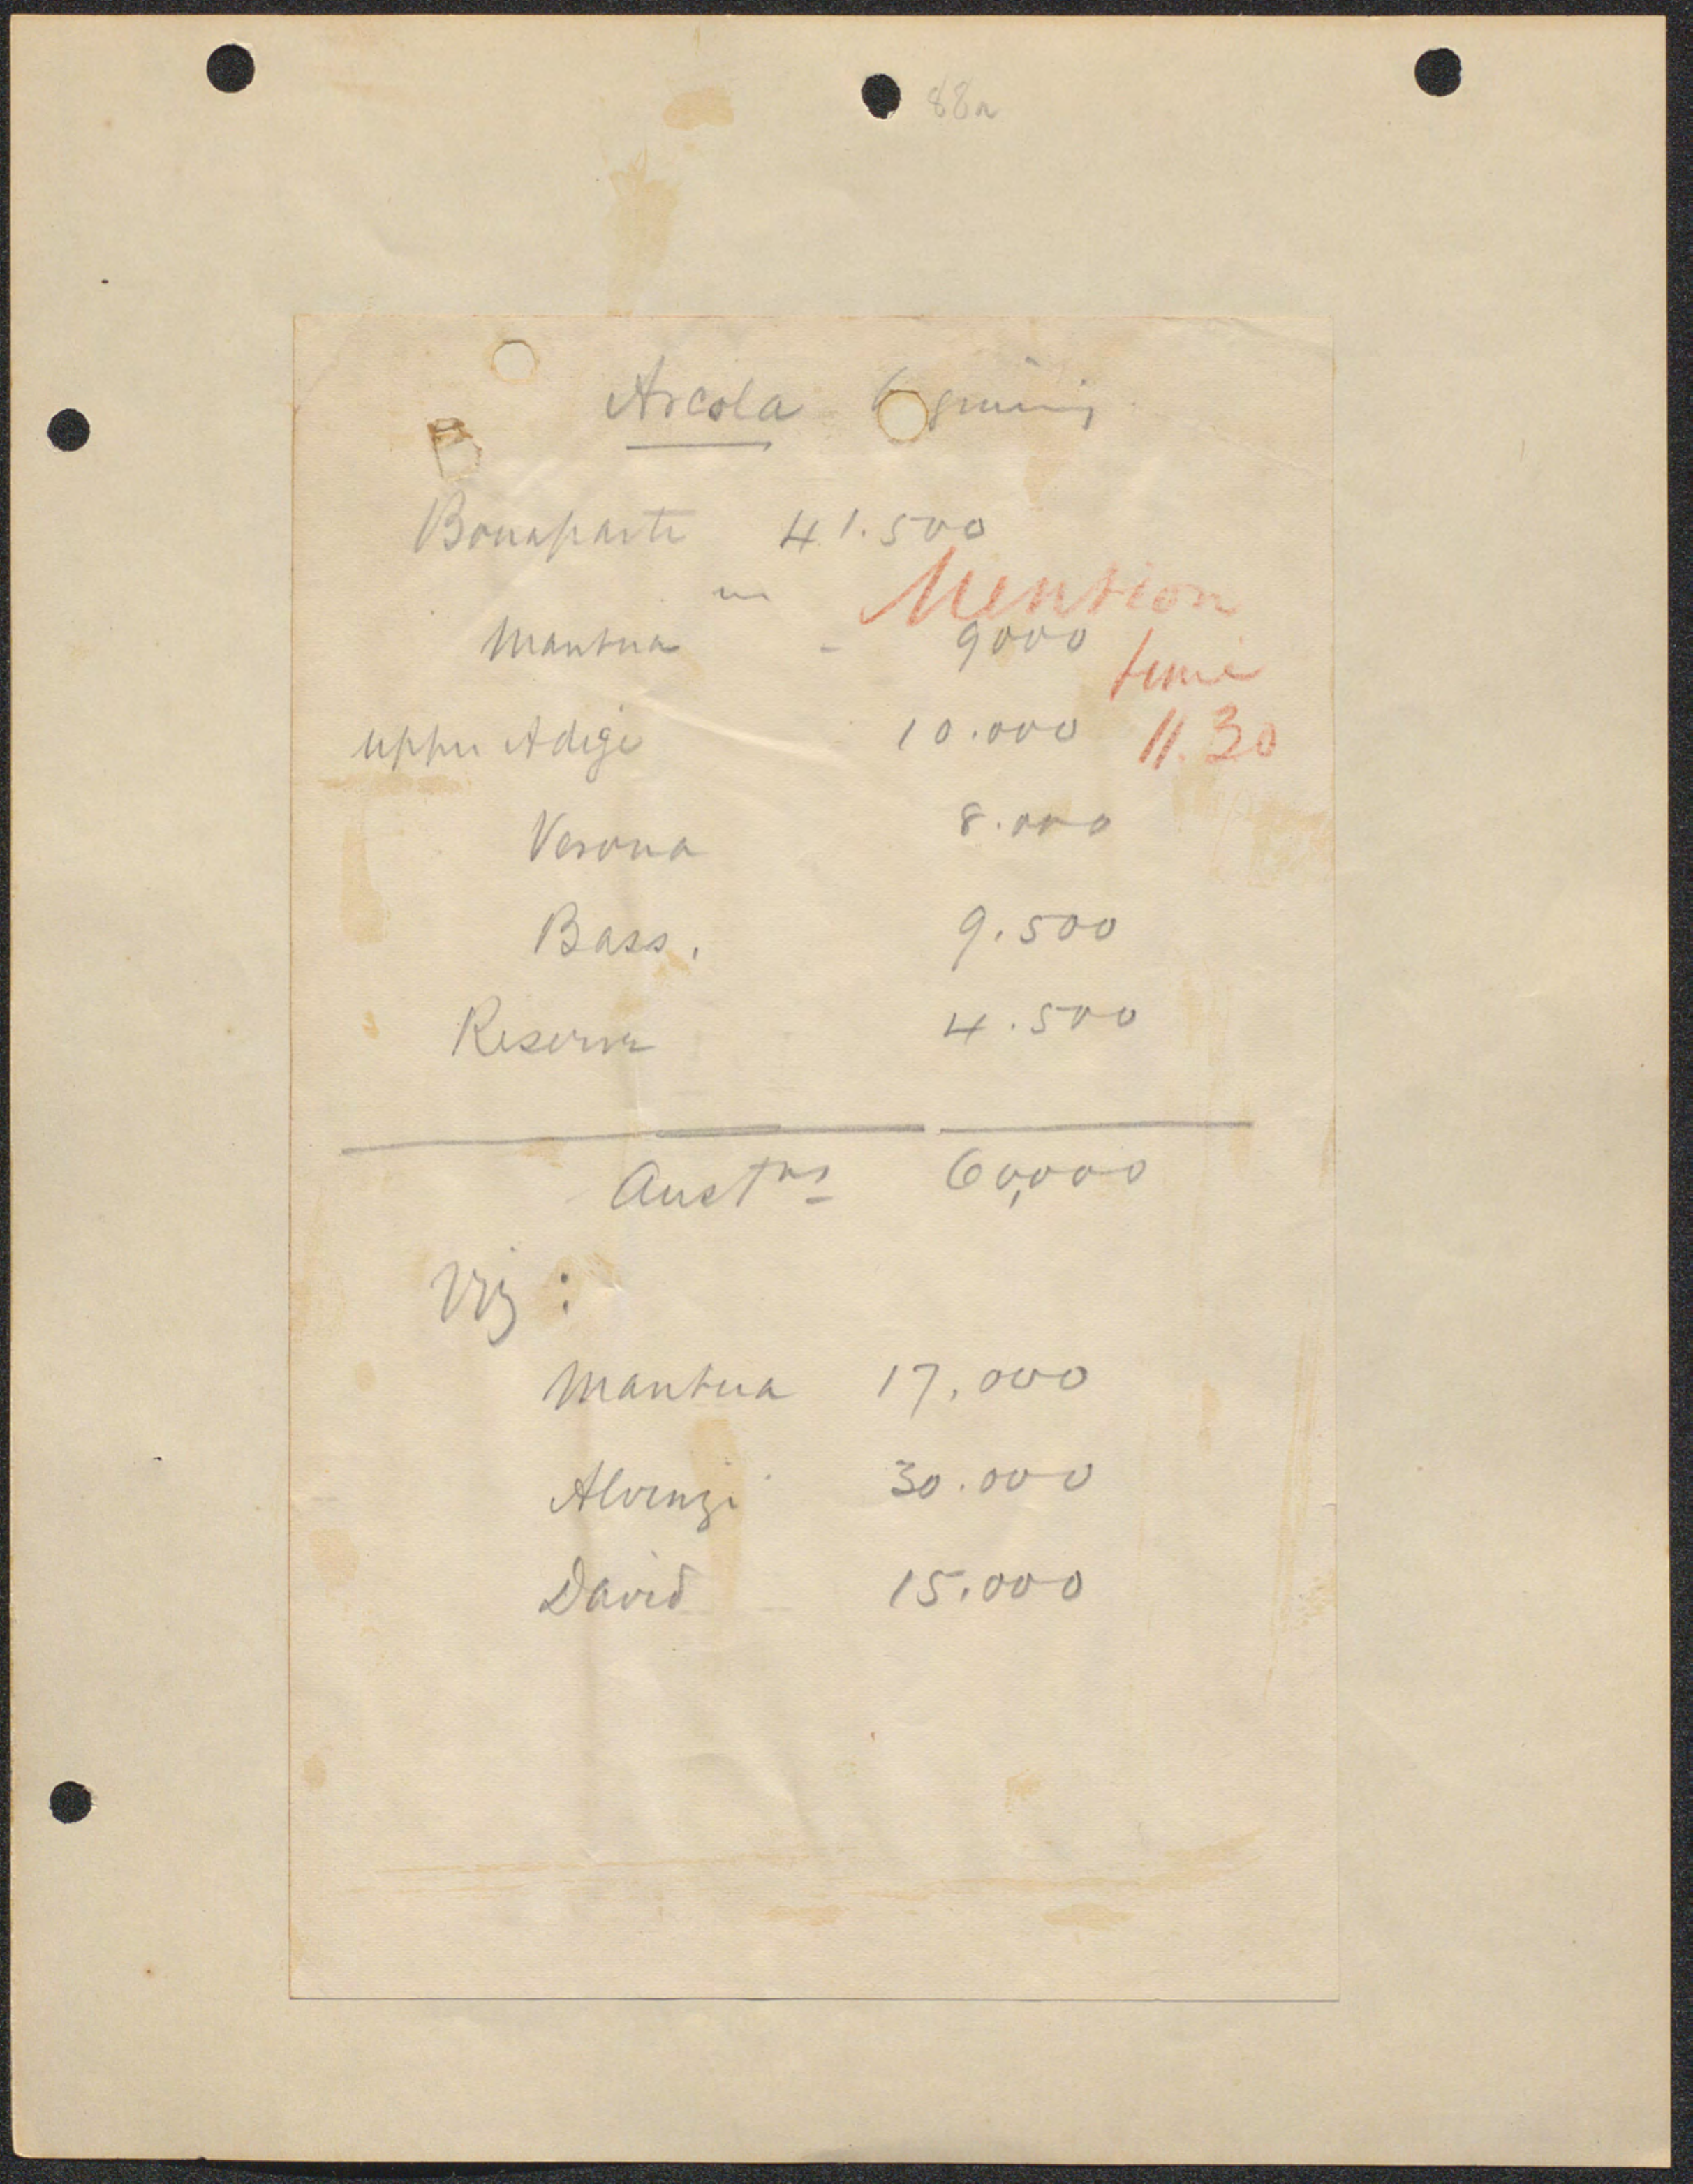 88a
Arcola beginning
Bonaparte 41.500
in
Mention
Mantua - 9000
time
upper Adige 10.000 11.30
Verona 8.000
Bass. 9.500
Reserve 4.500
Austns 60,000
Viz :
Mantua 17,000
Alvinzi 30.000
David 15.000